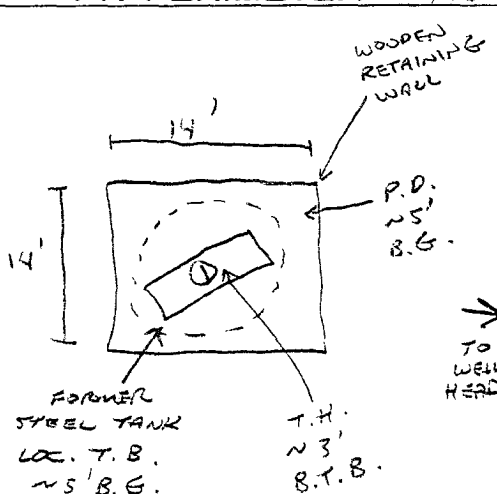 WOODEN
RETAINING
WALL
14'
14'
P.D.
~5'
B.G.
TO
WELL
HEAD
FORMER
STEEL TANK
LOC. T.B.
~5' B.G.
T.H.
~3'
B.T.B.
1